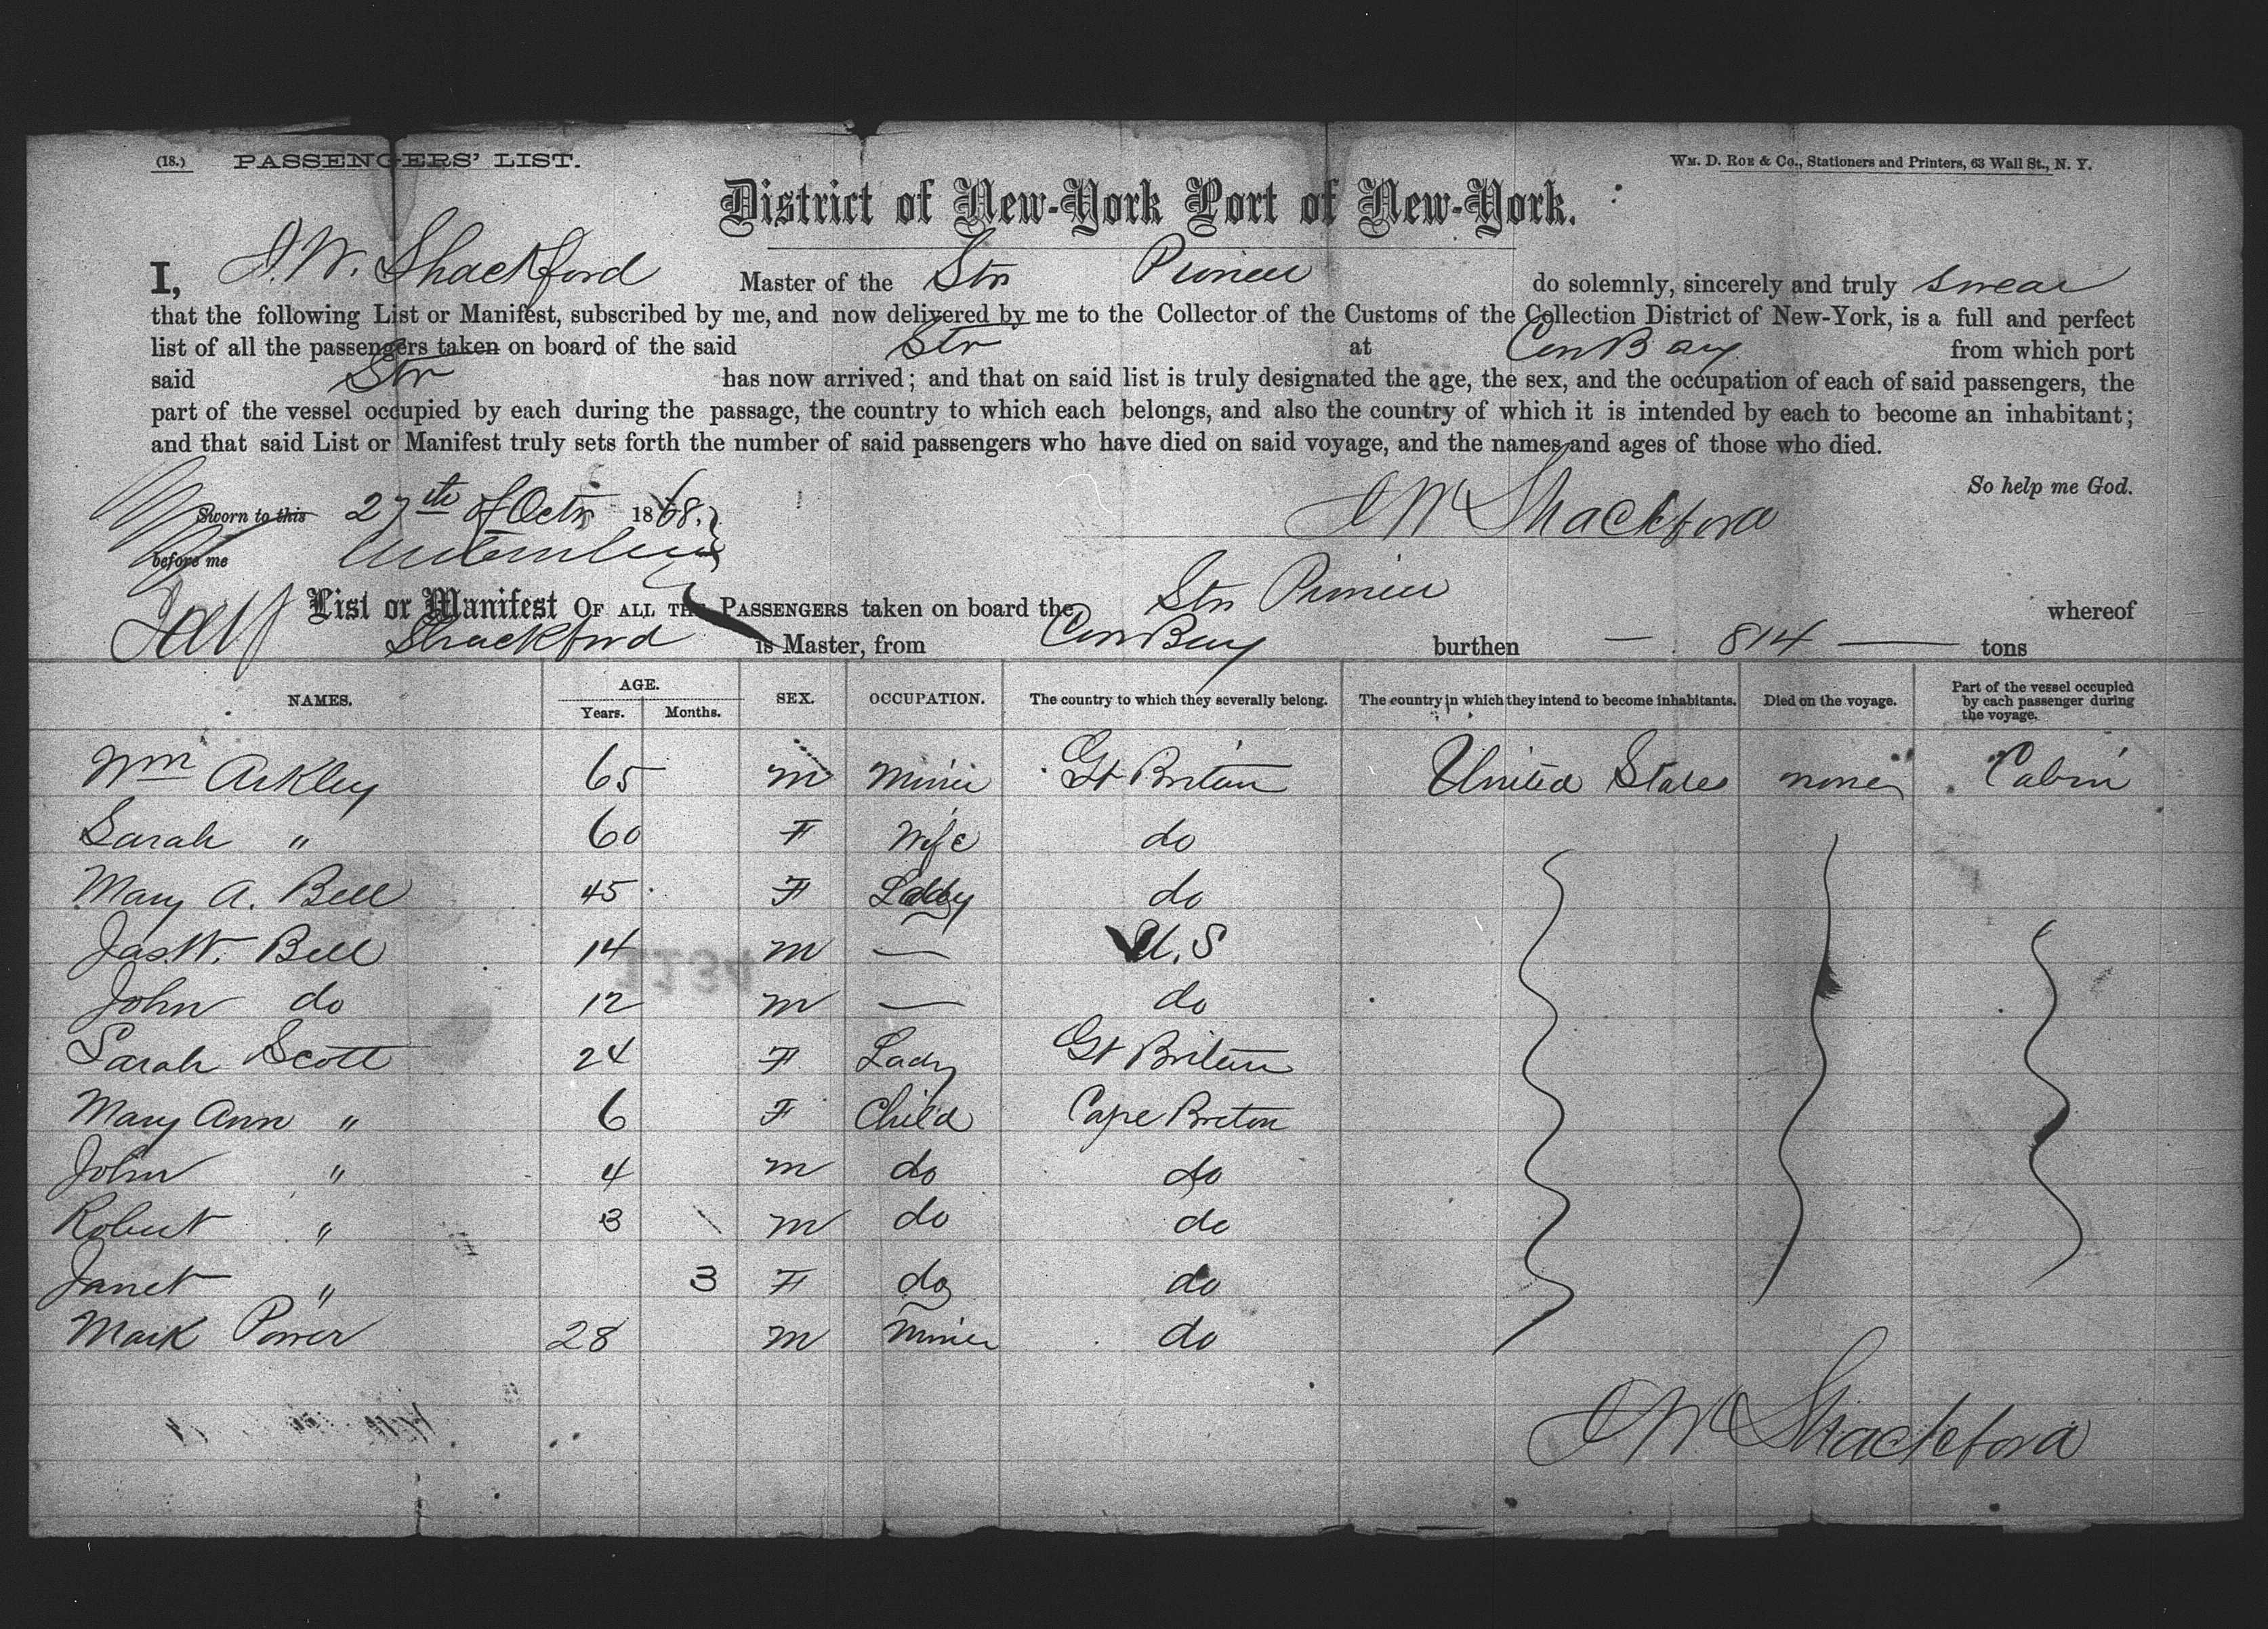 (18.) PASSENGERS' LIST. Wm. D. Roe & Co., Stationers and Printers, 63 Wall St., N. Y.
District of New-York Port of New-York.
I, J. W. Shackford Master of the Str Pioneer do solemnly, sincerely and truly swear
that the following List or Manifest, subscribed by me, and now delivered by me to the Collector of the Customs of the Collection District of New-York, is a full and perfect
list of all the passengers taken on board of the said Str at Cow Bay from which port
said Str has now arrived; and that on said list is truly designated the age, the sex, and the occupation of each of said passengers, the
part of the vessel occupied by each during the passage, the country to which each belongs, and also the country of which it is intended by each to become an inhabitant;
and that said List or Manifest truly sets forth the number of said passengers who have died on said voyage, and the names and ages of those who died.
So help me God.
Sworn to this 27th of Octr 1868. J W Shackford
before me
List or Manifest OF ALL THE PASSENGERS taken on board the Str Pioneer whereof
Shackford is Master, from Cow Bay burthen — 814 — tons
NAMES. AGE. Years. Months. SEX. OCCUPATION. The country to which they severally belong. The country in which they intend to become inhabitants. Died on the voyage. Part of the vessel occupied by each passenger during the voyage.
Wm Arkley 65 m Miner Gt Britain United States none Cabin
Sarah " 60 F Wife do
Mary A. Bell 45 F Lady do
Jas W. Bell 14 m — U.S
John do 12 m — do
Sarah Scott 24 F Lady Gt Britain
Mary Ann " 6 F Child Cape Breton
John " 4 m do do
Robert " 3 m do do
Janet " 3 F do do
Mark Power 28 m Miner do
J W Shackford